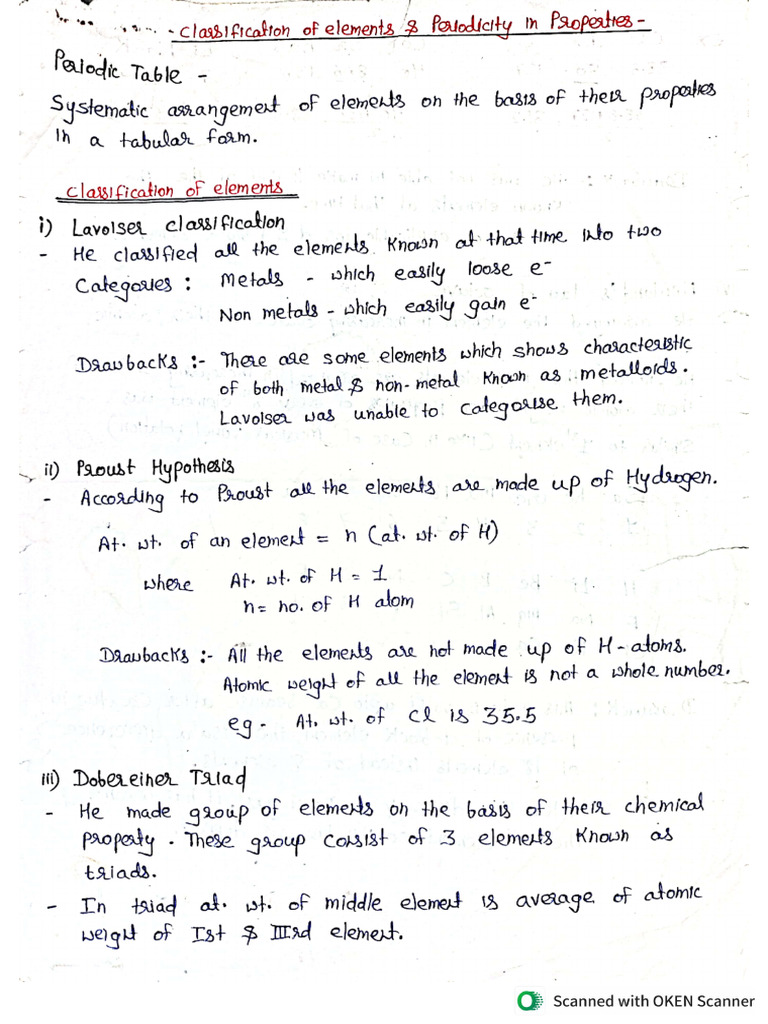 - Classification of elements & Periodicity in Properties -
Periodic Table -
Systematic arrangement of elements on the basis of their properties
in a tabular form.
Classification of elements
i) Lavoiser classification
- He classified all the elements known at that time into two
Categories : Metals - which easily loose e⁻
Non metals - which easily gain e⁻
Drawbacks :- There are some elements which shows characteristic
of both metal & non-metal known as metalloids.
Lavoiser was unable to categorise them.
ii) Proust Hypothesis
- According to Proust all the elements are made up of Hydrogen.
At. wt. of an element = n (at. wt. of H)
where At. wt. of H = 1
n = no. of H atom
Drawbacks :- All the elements are not made up of H-atoms.
Atomic weight of all the element is not a whole number.
eg - At. wt. of Cl is 35.5
iii) Dobereiner Triad
- He made group of elements on the basis of their chemical
property. These group consist of 3 elements known as
triads.
- In triad at. wt. of middle element is average of atomic
weight of Ist & IIIrd element.
Scanned with OKEN Scanner